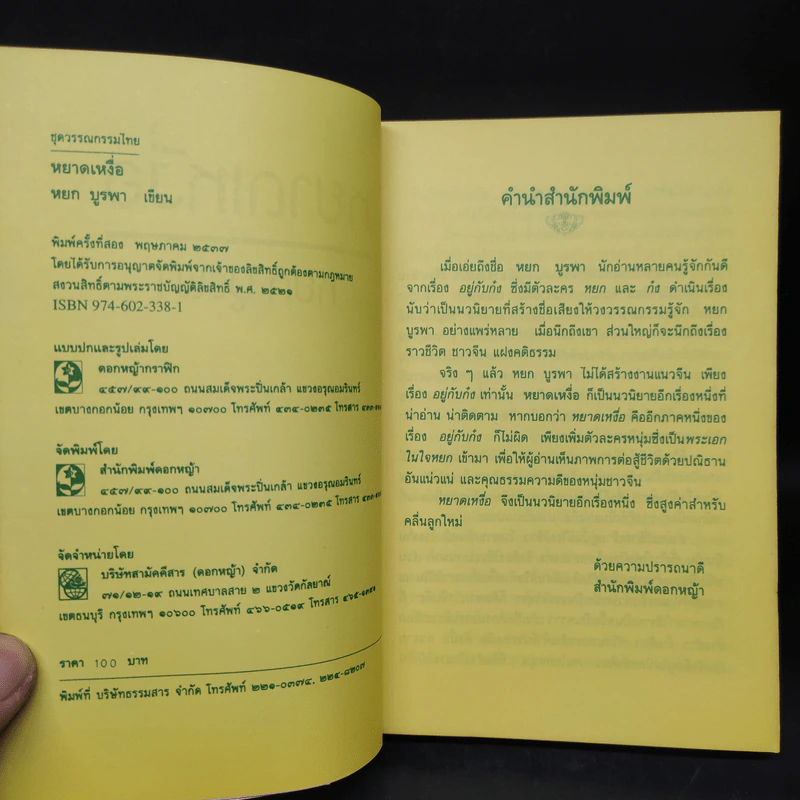 ชุดวรรณกรรมไทย
หยาดเหงื่อ
หยก บูรพา เขียน
พิมพ์ครั้งที่สอง พฤษภาคม ๒๕๓๗
โดยได้รับการอนุญาตจัดพิมพ์จากเจ้าของลิขสิทธิ์ถูกต้องตามกฎหมาย
สงวนสิทธิ์ตามพระราชบัญญัติลิขสิทธิ์ พ.ศ. ๒๕๒๑
ISBN 974-602-338-1
แบบปกและรูปเล่มโดย
ดอกหญ้ากราฟิก
๔๕๗/๙๙-๑๐๐ ถนนสมเด็จพระปิ่นเกล้า แขวงอรุณอมรินทร์
เขตบางกอกน้อย กรุงเทพฯ ๑๐๗๐๐ โทรศัพท์ ๔๓๔-๐๒๓๕ โทรสาร
จัดพิมพ์โดย
สำนักพิมพ์ดอกหญ้า
๔๕๗/๙๙-๑๐๐ ถนนสมเด็จพระปิ่นเกล้า แขวงอรุณอมรินทร์
เขตบางกอกน้อย กรุงเทพฯ ๑๐๗๐๐ โทรศัพท์ ๔๓๔-๐๒๓๕ โทรสาร
จัดจำหน่ายโดย
บริษัทสามัคคีสาร (ดอกหญ้า) จำกัด
๗๑/๑๒-๑๙ ถนนเทศบาลสาย ๒ แขวงวัดกัลยาณ์
เขตธนบุรี กรุงเทพฯ ๑๐๖๐๐ โทรศัพท์ ๔๖๖-๐๕๑๙ โทรสาร
ราคา 100 บาท
พิมพ์ที่ บริษัทธรรมสาร จำกัด โทรศัพท์ ๒๒๑-๐๓๗๔, ๒๒๔-๘๒๐๗
คำนำสำนักพิมพ์
เมื่อเอ่ยถึงชื่อ หยก บูรพา นักอ่านหลายคนรู้จักกันดี
จากเรื่อง อยู่กับก๋ง ซึ่งมีตัวละคร หยก และ ก๋ง ดำเนินเรื่อง
นับว่าเป็นนวนิยายที่สร้างชื่อเสียงให้วงวรรณกรรมรู้จัก หยก
บูรพา อย่างแพร่หลาย เมื่อนึกถึงเขา ส่วนใหญ่ก็จะนึกถึงเรื่อง
ราวชีวิต ชาวจีน แฝงคติธรรม
จริง ๆ แล้ว หยก บูรพา ไม่ได้สร้างงานแนวจีน เพียง
เรื่อง อยู่กับก๋ง เท่านั้น หยาดเหงื่อ ก็เป็นนวนิยายอีกเรื่องหนึ่งที่
น่าอ่าน น่าติดตาม หากบอกว่า หยาดเหงื่อ คืออีกภาคหนึ่งของ
เรื่อง อยู่กับก๋ง ก็ไม่ผิด เพียงเพิ่มตัวละครหนุ่มซึ่งเป็นพระเอก
ในใจหยก เข้ามา เพื่อให้ผู้อ่านเห็นภาพการต่อสู้ชีวิตด้วยปณิธาน
อันแน่วแน่ และคุณธรรมความดีของหนุ่มชาวจีน
หยาดเหงื่อ จึงเป็นนวนิยายอีกเรื่องหนึ่ง ซึ่งสูงค่าสำหรับ
คลื่นลูกใหม่
ด้วยความปรารถนาดี
สำนักพิมพ์ดอกหญ้า